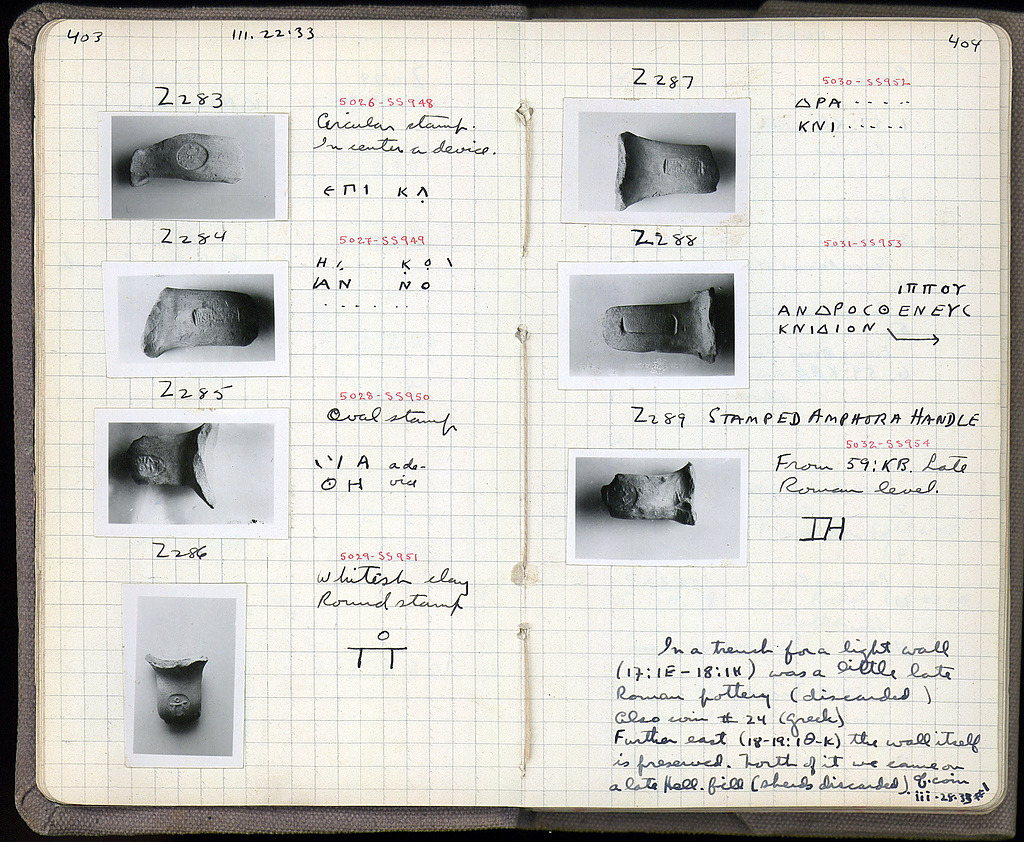 403
III. 22·33
Z 283
5026-SS948
Circular stamp.
In center a device.
ΕΠΙ ΚΛ̣
Z 284
5027-SS949
ΑΝ ΝΟ
. . . . . .
Z 285
5028-SS950
Oval stamp
Α a de-
ΘΗ vice
Z 286
5029-SS951
Whitish clay
Round stamp
404
Z 287
5030-SS952
ΔΡΑ · · · · ·
ΚΝΙ · · · · ·
Z 288
5031-SS953
ΙΠΠΟΥ
ΑΝΔΡΟCΘΕΝΕΥC
ΚΝΙΔΙΟΝ
Z 289 STAMPED AMPHORA HANDLE
5032-SS954
From 59:KB. Late
Roman level.
ΙΗ
In a trench for a light wall
(17:ΙΕ-18:ΙΗ) was a little late
Roman pottery (discarded)
Also coin # 24 (Greek)
Further east (18-19:ΙΘ-Κ) the wall itself
is preserved. North of it we came on
a late Hell. fill (sherds discarded). cf. coin
iii-28-33 #1